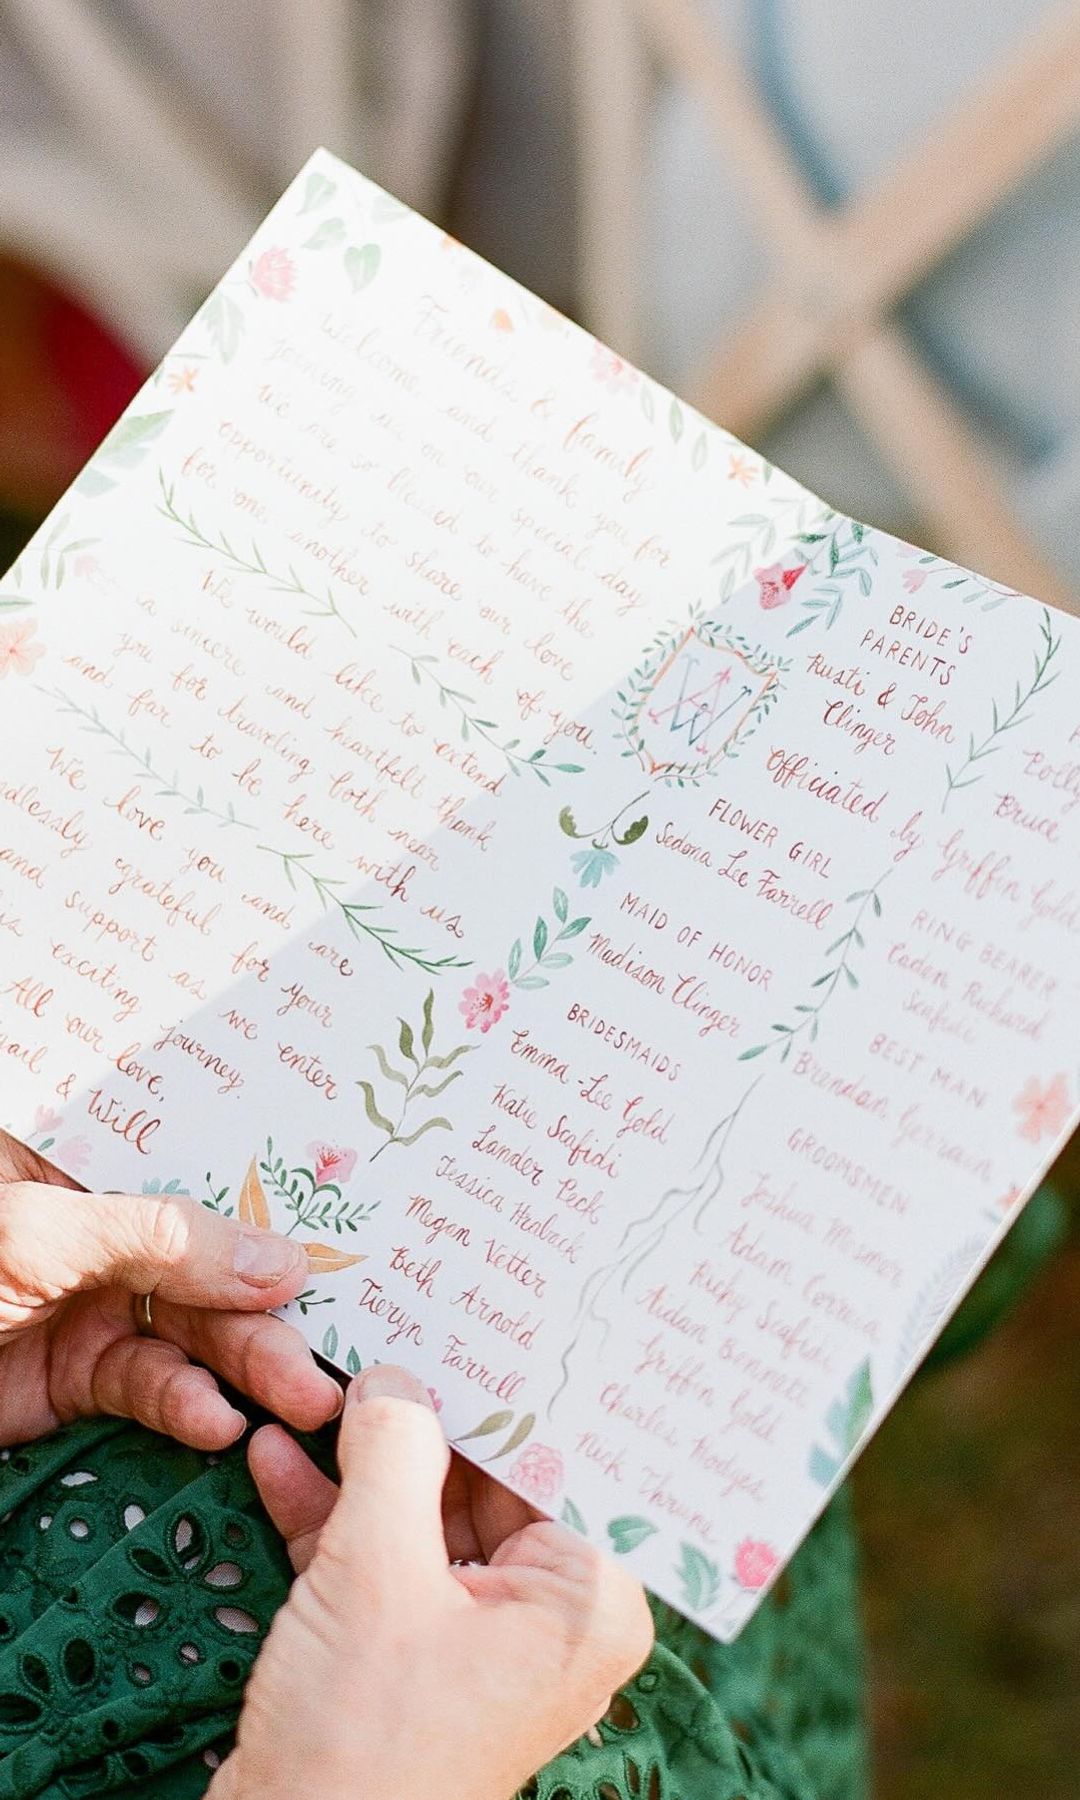 Friends & family
Welcome and thank you for
joining us on our special day
We are so blessed to have the
opportunity to share our love
for one another with each of you.
We would like to extend
a sincere and heartfelt thank
you for traveling both near
and far to be here with us
We love you and are
grateful for your
and support as we enter
exciting journey.
All our love,
& Will
BRIDE'S
PARENTS
Rusti & John
Clinger
Officiated by Griffin Gold
FLOWER GIRL
Sedona Lee Farrell
MAID OF HONOR
Madison Clinger
BRIDESMAIDS
Emma-Lee Gold
Katie Scafidi
Lander Peck
Jessica Hraback
Megan Vetter
Beth Arnold
Tieryn Farrell
Bruce
RING BEARER
Caden Richard
Scafidi
BEST MAN
Brendan
GROOMSMEN
Joshua
Adam Correia
Ricky Scafidi
Aidan Bennett
Griffin Gold
Charles Hodges
Nick